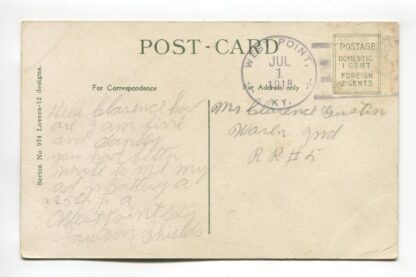 POST-CARD
For Correspondence
For Address only
Series No 974 Lovers-12 designs.
WEST POINT.
JUL
1
1918
KY.
POSTAGE
DOMESTIC
1 CENT
FOREIGN
2 CENTS
Hello Clarence how
are I am fine
and dandy
you had better
write to me my
ad is Battery A
325th F. A
West Point Ky
Shields
Mr Clarence
Wash Ind
R R #5